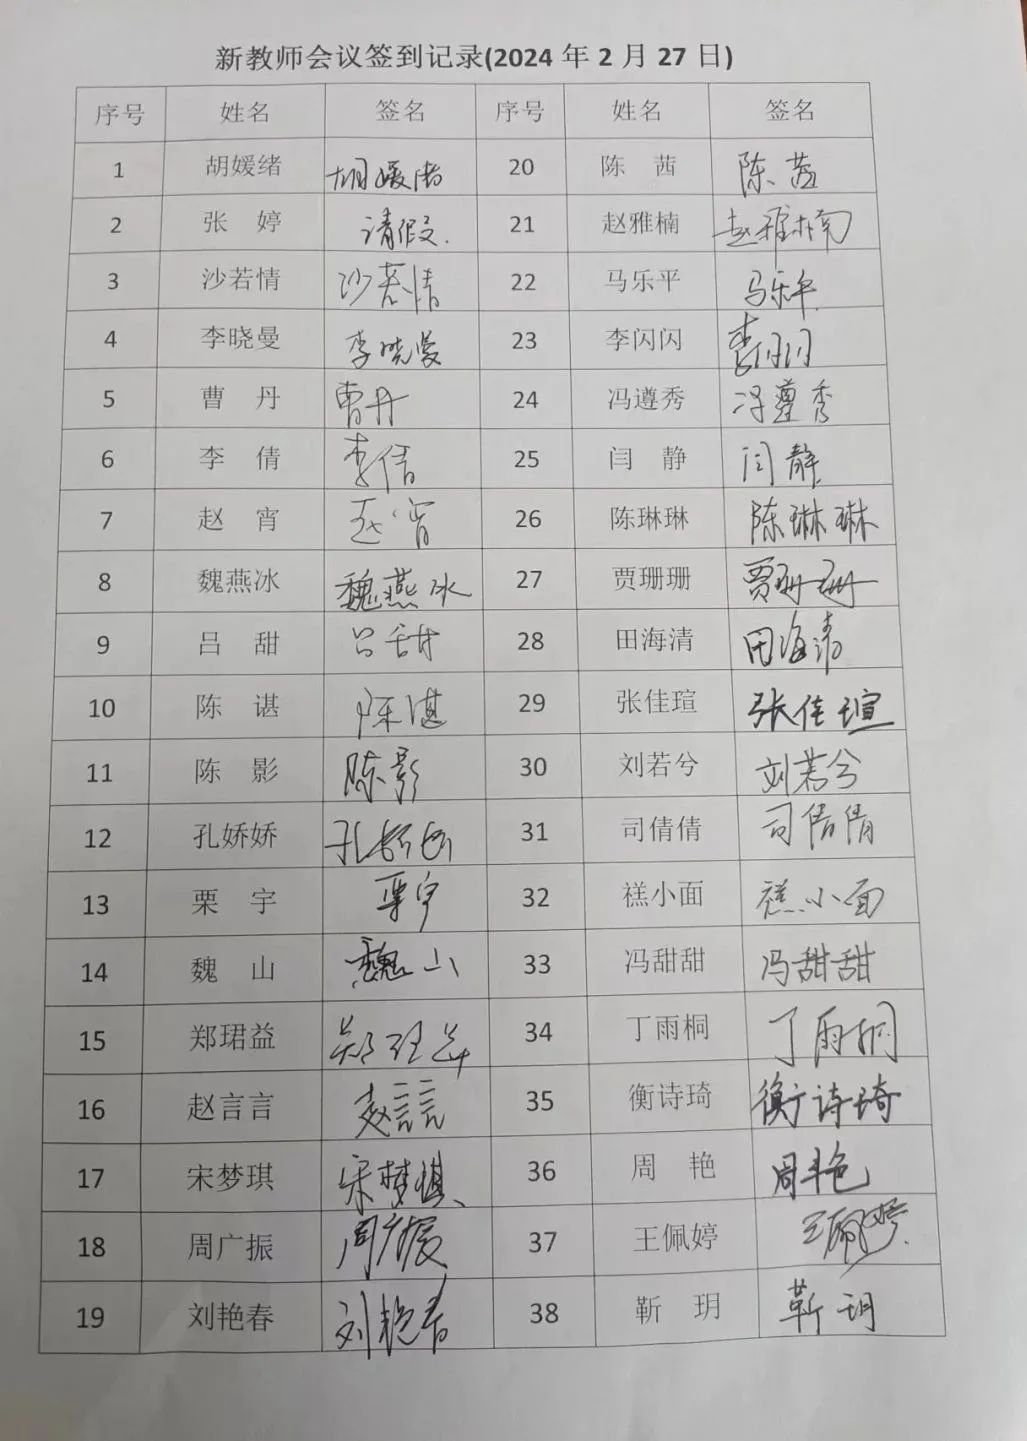 新教师会议签到记录(2024年2月27日)
序号 姓名 签名 序号 姓名 签名
1 胡媛绪 胡媛绪 20 陈 茜 陈茜
2 张 婷 请假. 21 赵雅楠 赵雅楠
3 沙若情 沙若情 22 马乐平 马乐平
4 李晓曼 李晓曼 23 李闪闪 李闪闪
5 曹 丹 曹丹 24 冯遵秀 冯遵秀
6 李 倩 李倩 25 闫 静 闫静
7 赵 宵 赵宵 26 陈琳琳 陈琳琳
8 魏燕冰 魏燕冰 27 贾珊珊 贾珊珊
9 吕 甜 吕甜 28 田海清 田海清
10 陈 谌 陈谌 29 张佳瑄 张佳瑄
11 陈 影 陈影 30 刘若兮 刘若兮
12 孔娇娇 孔娇娇 31 司倩倩 司倩倩
13 栗 宇 栗宇 32 禚小面 禚小面
14 魏 山 魏山 33 冯甜甜 冯甜甜
15 郑珺益 郑珺益 34 丁雨桐 丁雨桐
16 赵言言 赵言言 35 衡诗琦 衡诗琦
17 宋梦琪 宋梦琪 36 周 艳 周艳
18 周广振 周广振 37 王佩婷 王佩婷
19 刘艳春 刘艳春 38 靳 玥 靳玥